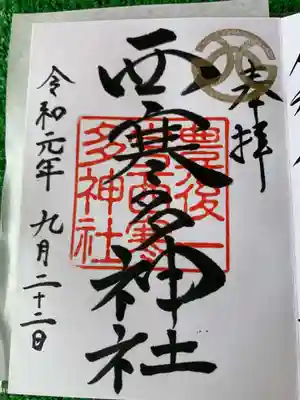 奉拝
西寒多神社
豊後一
宮西寒
多神社
令和元年 九月二十二日